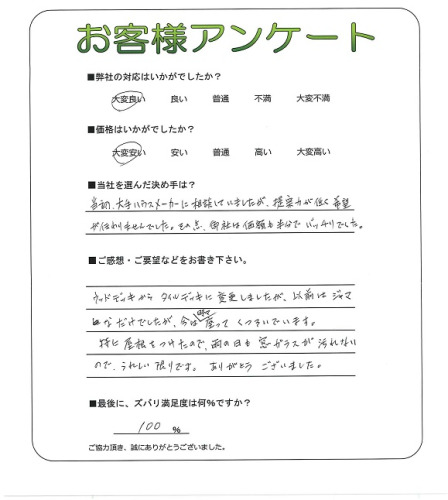 お客様アンケート
■弊社の対応はいかがでしたか？
大変良い 良い 普通 不満 大変不満
■価格はいかがでしたか？
大変安い 安い 普通 高い 大変高い
■当社を選んだ決め手は？
当初、大手ハウスメーカーに相談していましたが、提案力が低く希望
が伝わりませんでした。その点、御社は価格も半分でバッチリでした。
■ご感想・ご要望などをお書き下さい。
ウッドデッキからタイルデッキに変更しましたが、以前はジャマ
なだけでしたが、今は座ってくつろいでいます。
特に屋根をつけたので、雨の日も窓ガラスが汚れない
ので、うれしい限りです。ありがとうございました。
■最後に、ズバリ満足度は何%ですか？
100 %
ご協力頂き、誠にありがとうございました。